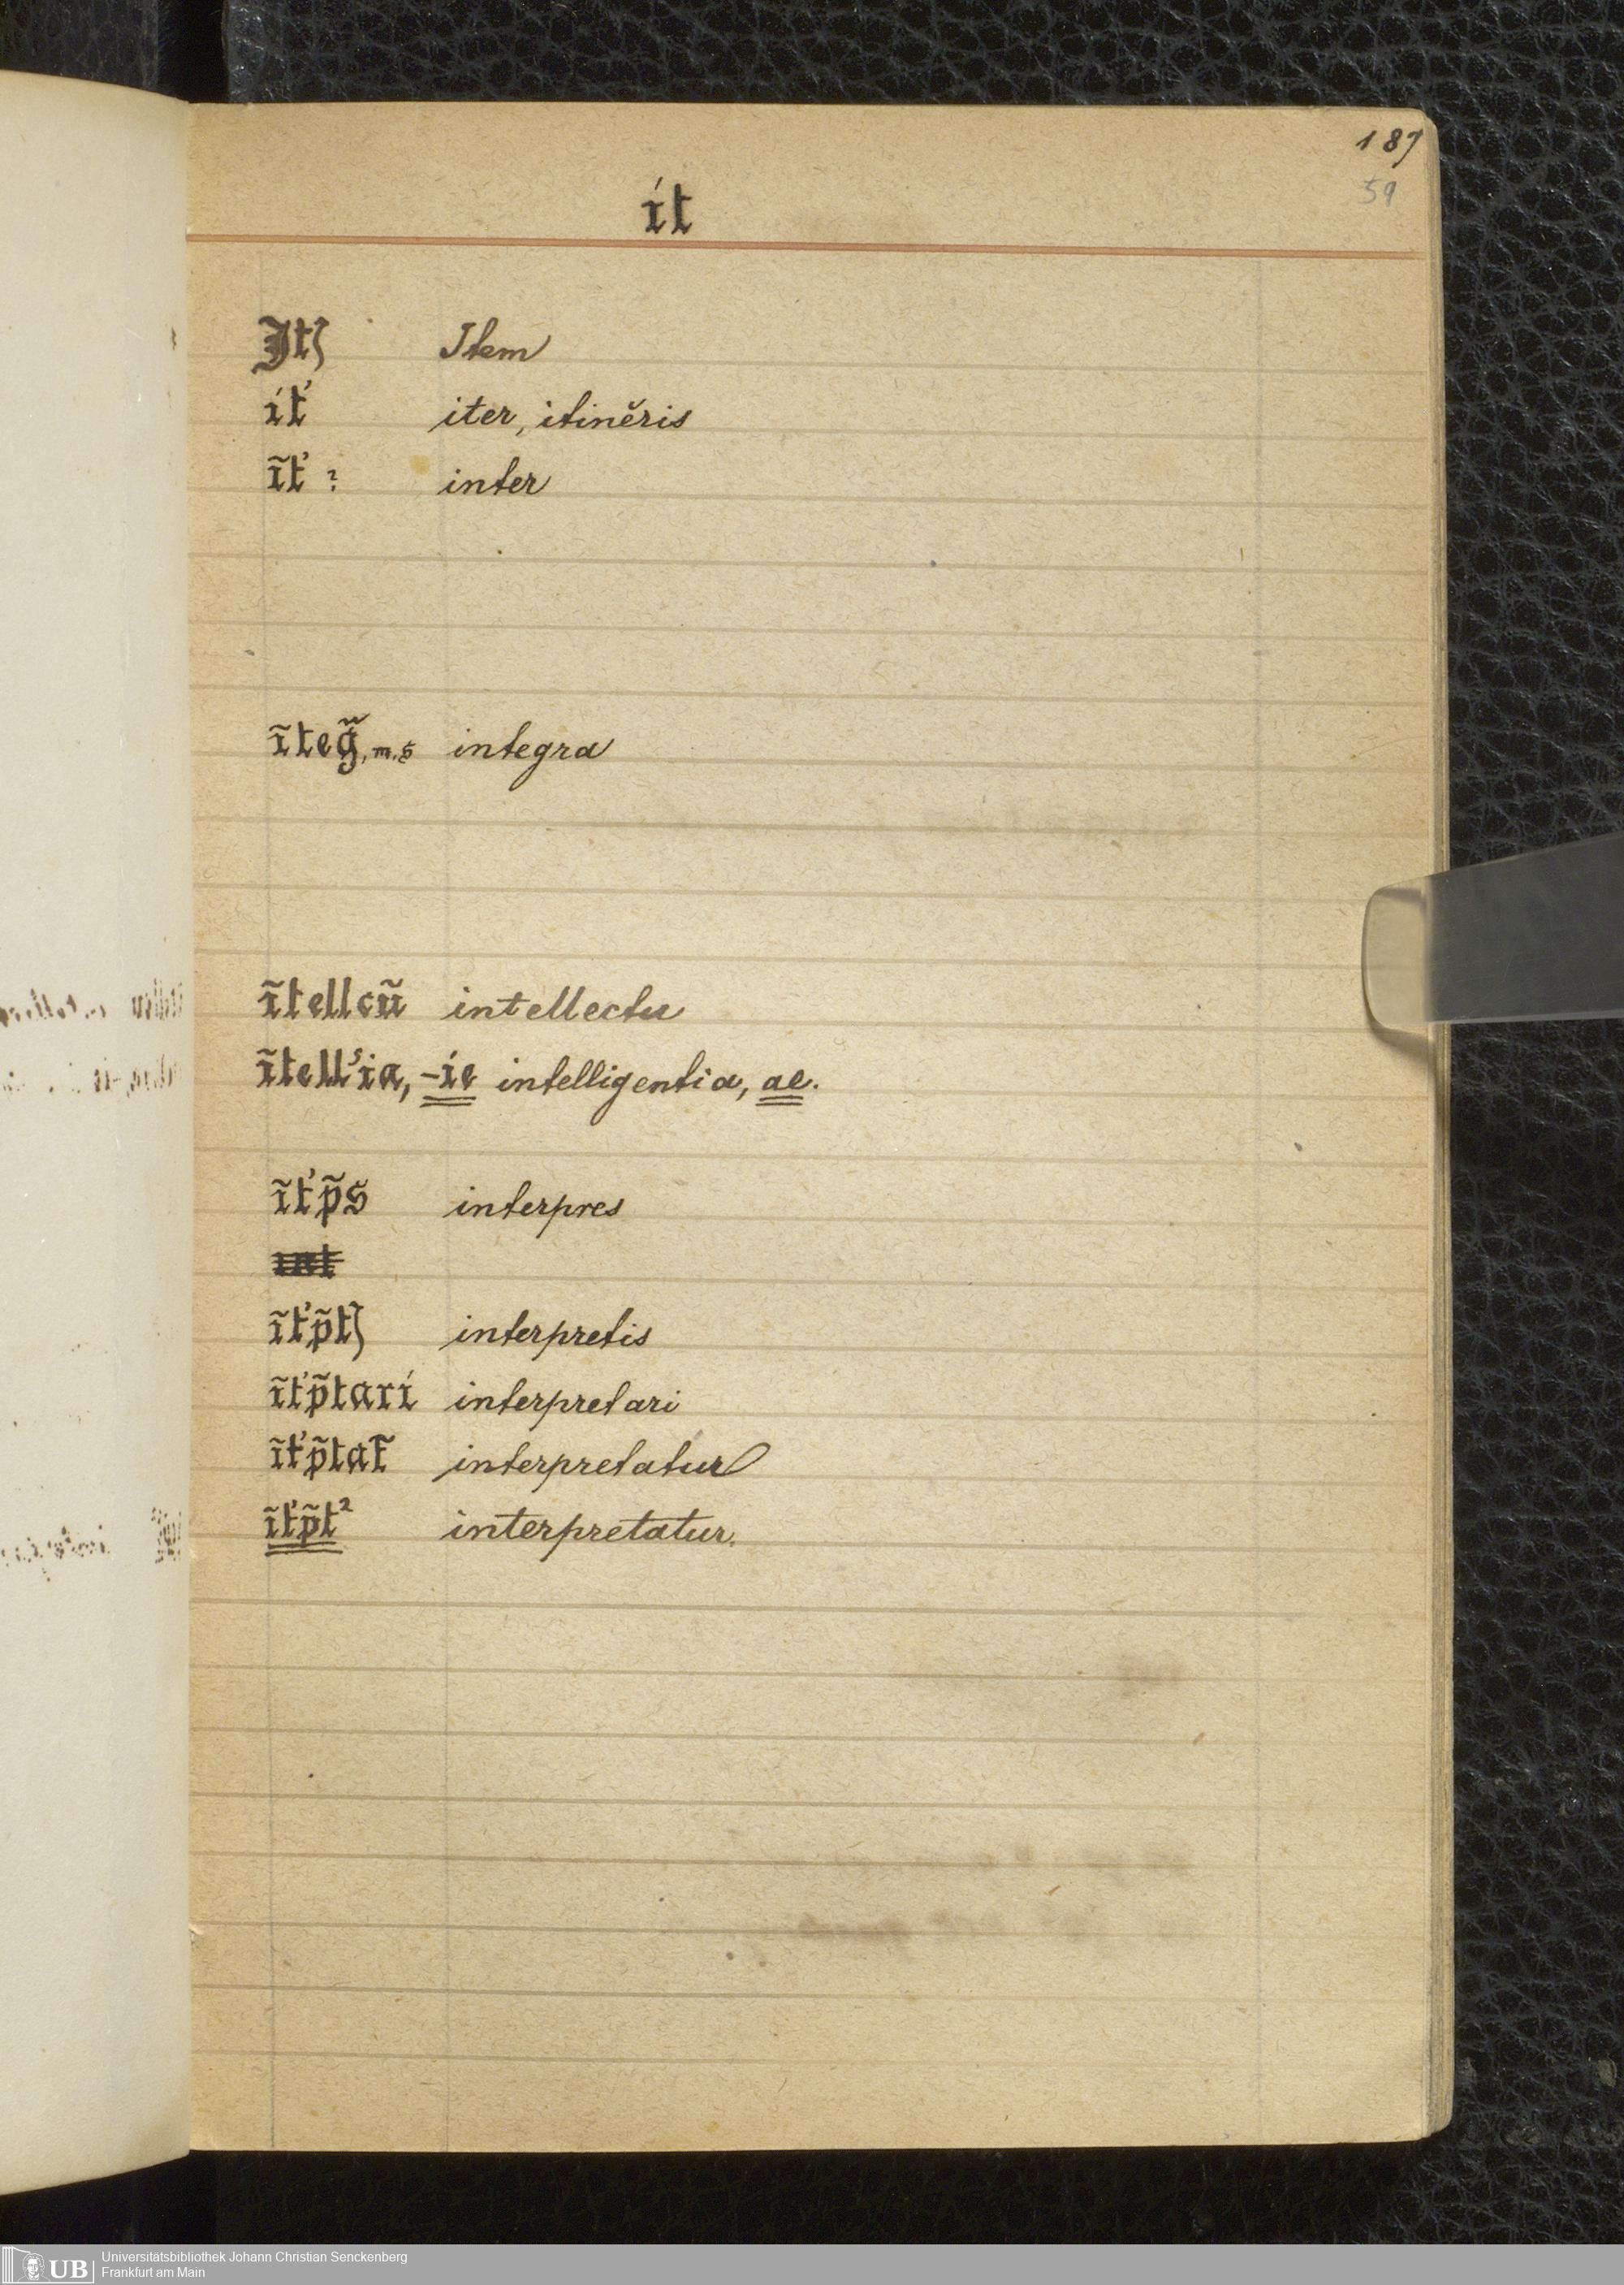 187
59
it
Itꝫ Item
it' iter, itinĕris
ĩt' ? inter
ĩteg̃, m. s integra
ĩtellcũ intellectu
ĩtellˢia, -ie intelligentia, ae.
ĩt'p̃s interpres
int
ĩt'p̃tꝫ interpretis
ĩt'p̃tari interpretari
ĩt'p̃tat̃ interpretatur
ĩt'p̃t² interpretatur.
UB Universitätsbibliothek Johann Christian Senckenberg
Frankfurt am Main